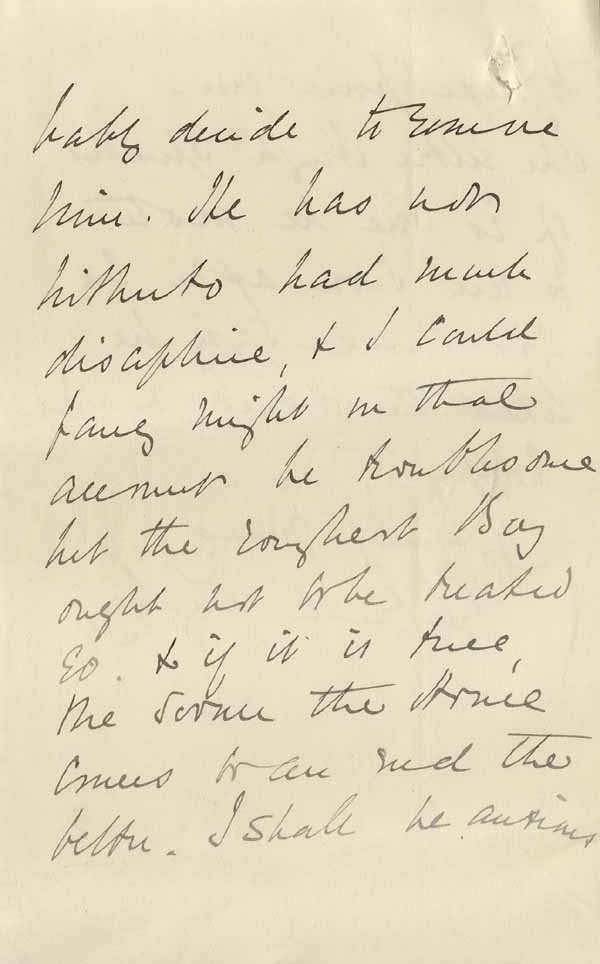 bably decide to remove
him. He has not
hitherto had much
discipline, & I could
fancy might on that
account be troublesome
but the roughest Boy
ought not to be treated
so. & if it is true,
the sooner the Home
comes to an end the
better. I shall be anxious